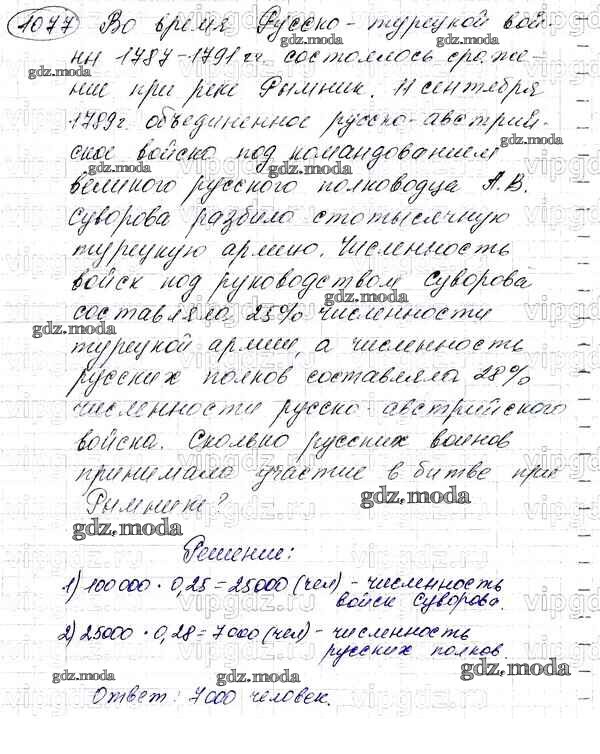 1077 Во время Русско-турецкой вой-
ны 1787-1791 гг. состоялось сраже-
ние при реке Рымник. 11 сентября
1789г. объединенное русско-австрий-
ское войско под командованием
великого русского полководца А.В.
Суворова разбило стотысячную
турецкую армию. Численность
войск под руководством Суворова
составляла 25% численности
турецкой армии, а численность
русских полков составляла 28%
численности русско-австрийского
войска. Сколько русских воинов
принимало участие в битве при
Рымнике?
Решение:
1) 100000 · 0,25 = 25000 (чел) - численность
войск Суворова.
2) 25000 · 0,28 = 7000 (чел) - численность
русских полков.
Ответ: 7000 человек.